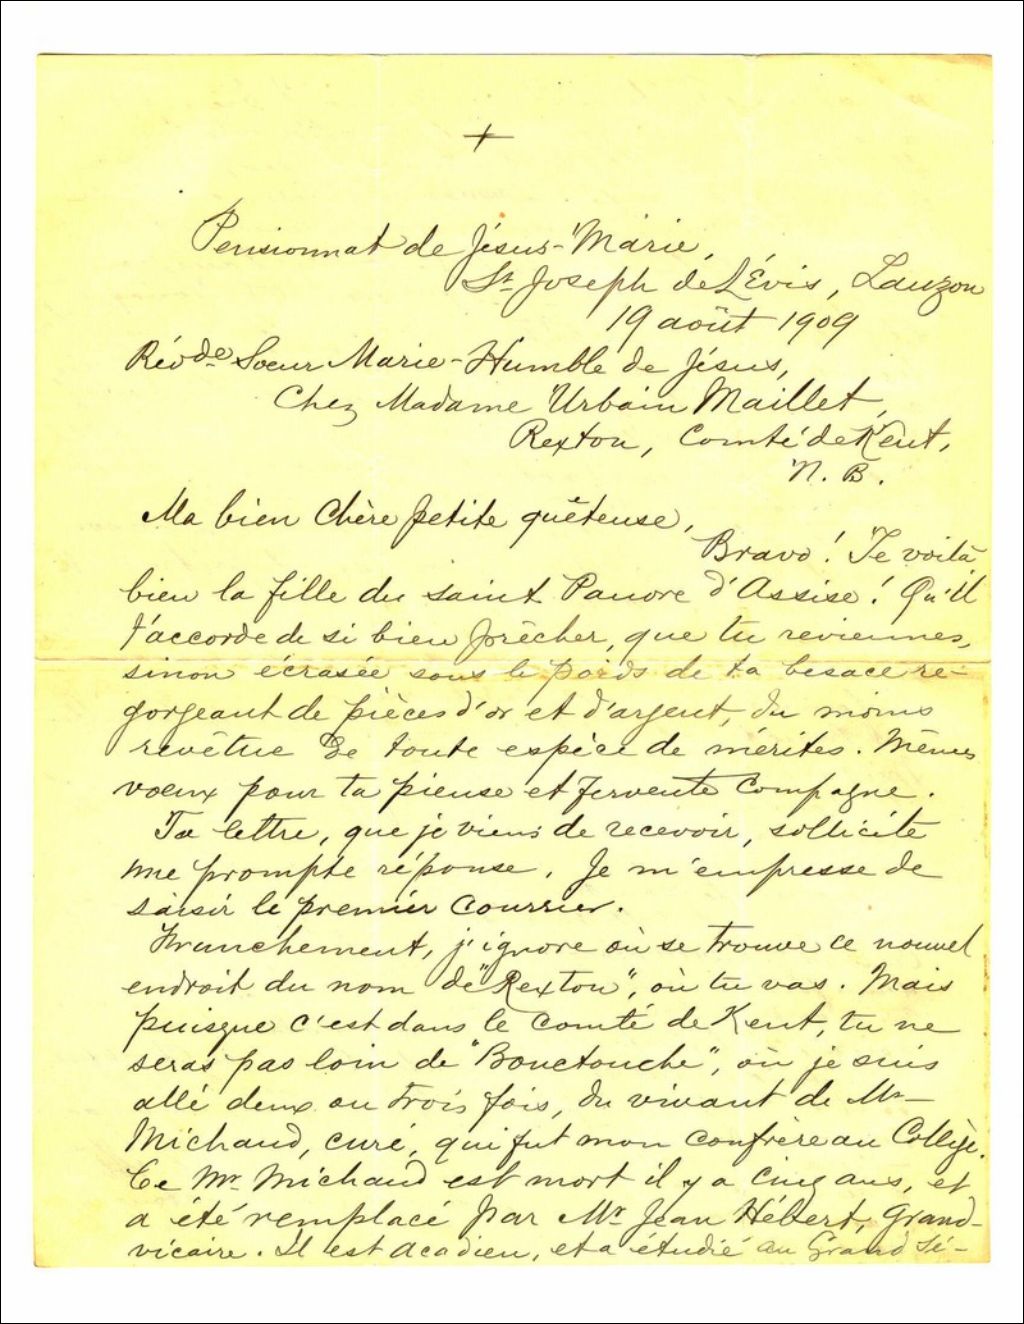 +
Pensionnat de Jésus-Marie,
St Joseph de Lévis, Lauzon
19 août 1909
Révde Soeur Marie-Humble de Jésus,
Chez Madame Urbain Maillet,
Rexton, Comté de Kent,
N. B.
Ma bien Chère petite quêteuse,
Bravo! Te voilà
bien la fille du saint Pauvre d'Assise! Qu'Il
t'accorde de si bien prêcher, que tu reviennes,
sinon écrasée sous le poids de ta besace re-
gorgeant de pièces d'or et d'argent, du moins
revêtue de toute espèce de mérites. Mêmes
voeux pour ta pieuse et fervente Compagne.
Ta lettre, que je viens de recevoir, sollicite
une prompte réponse. Je m'empresse de
saisir le premier Courrier.
Franchement, j'ignore où se trouve ce nouvel
endroit du nom de "Rexton", où tu vas. Mais
puisque c'est dans le comté de Kent, tu ne
seras pas loin de "Bouctouche", où je suis
allé deux ou trois fois, du vivant de Mr
Michaud, curé, qui fut mon confrère au Collège.
Ce Mr Michaud est mort il y a cinq ans, et
a été remplacé par Mr Jean Hébert, Grand-
vicaire. Il est Acadien, et a étudié au Grand Sé-